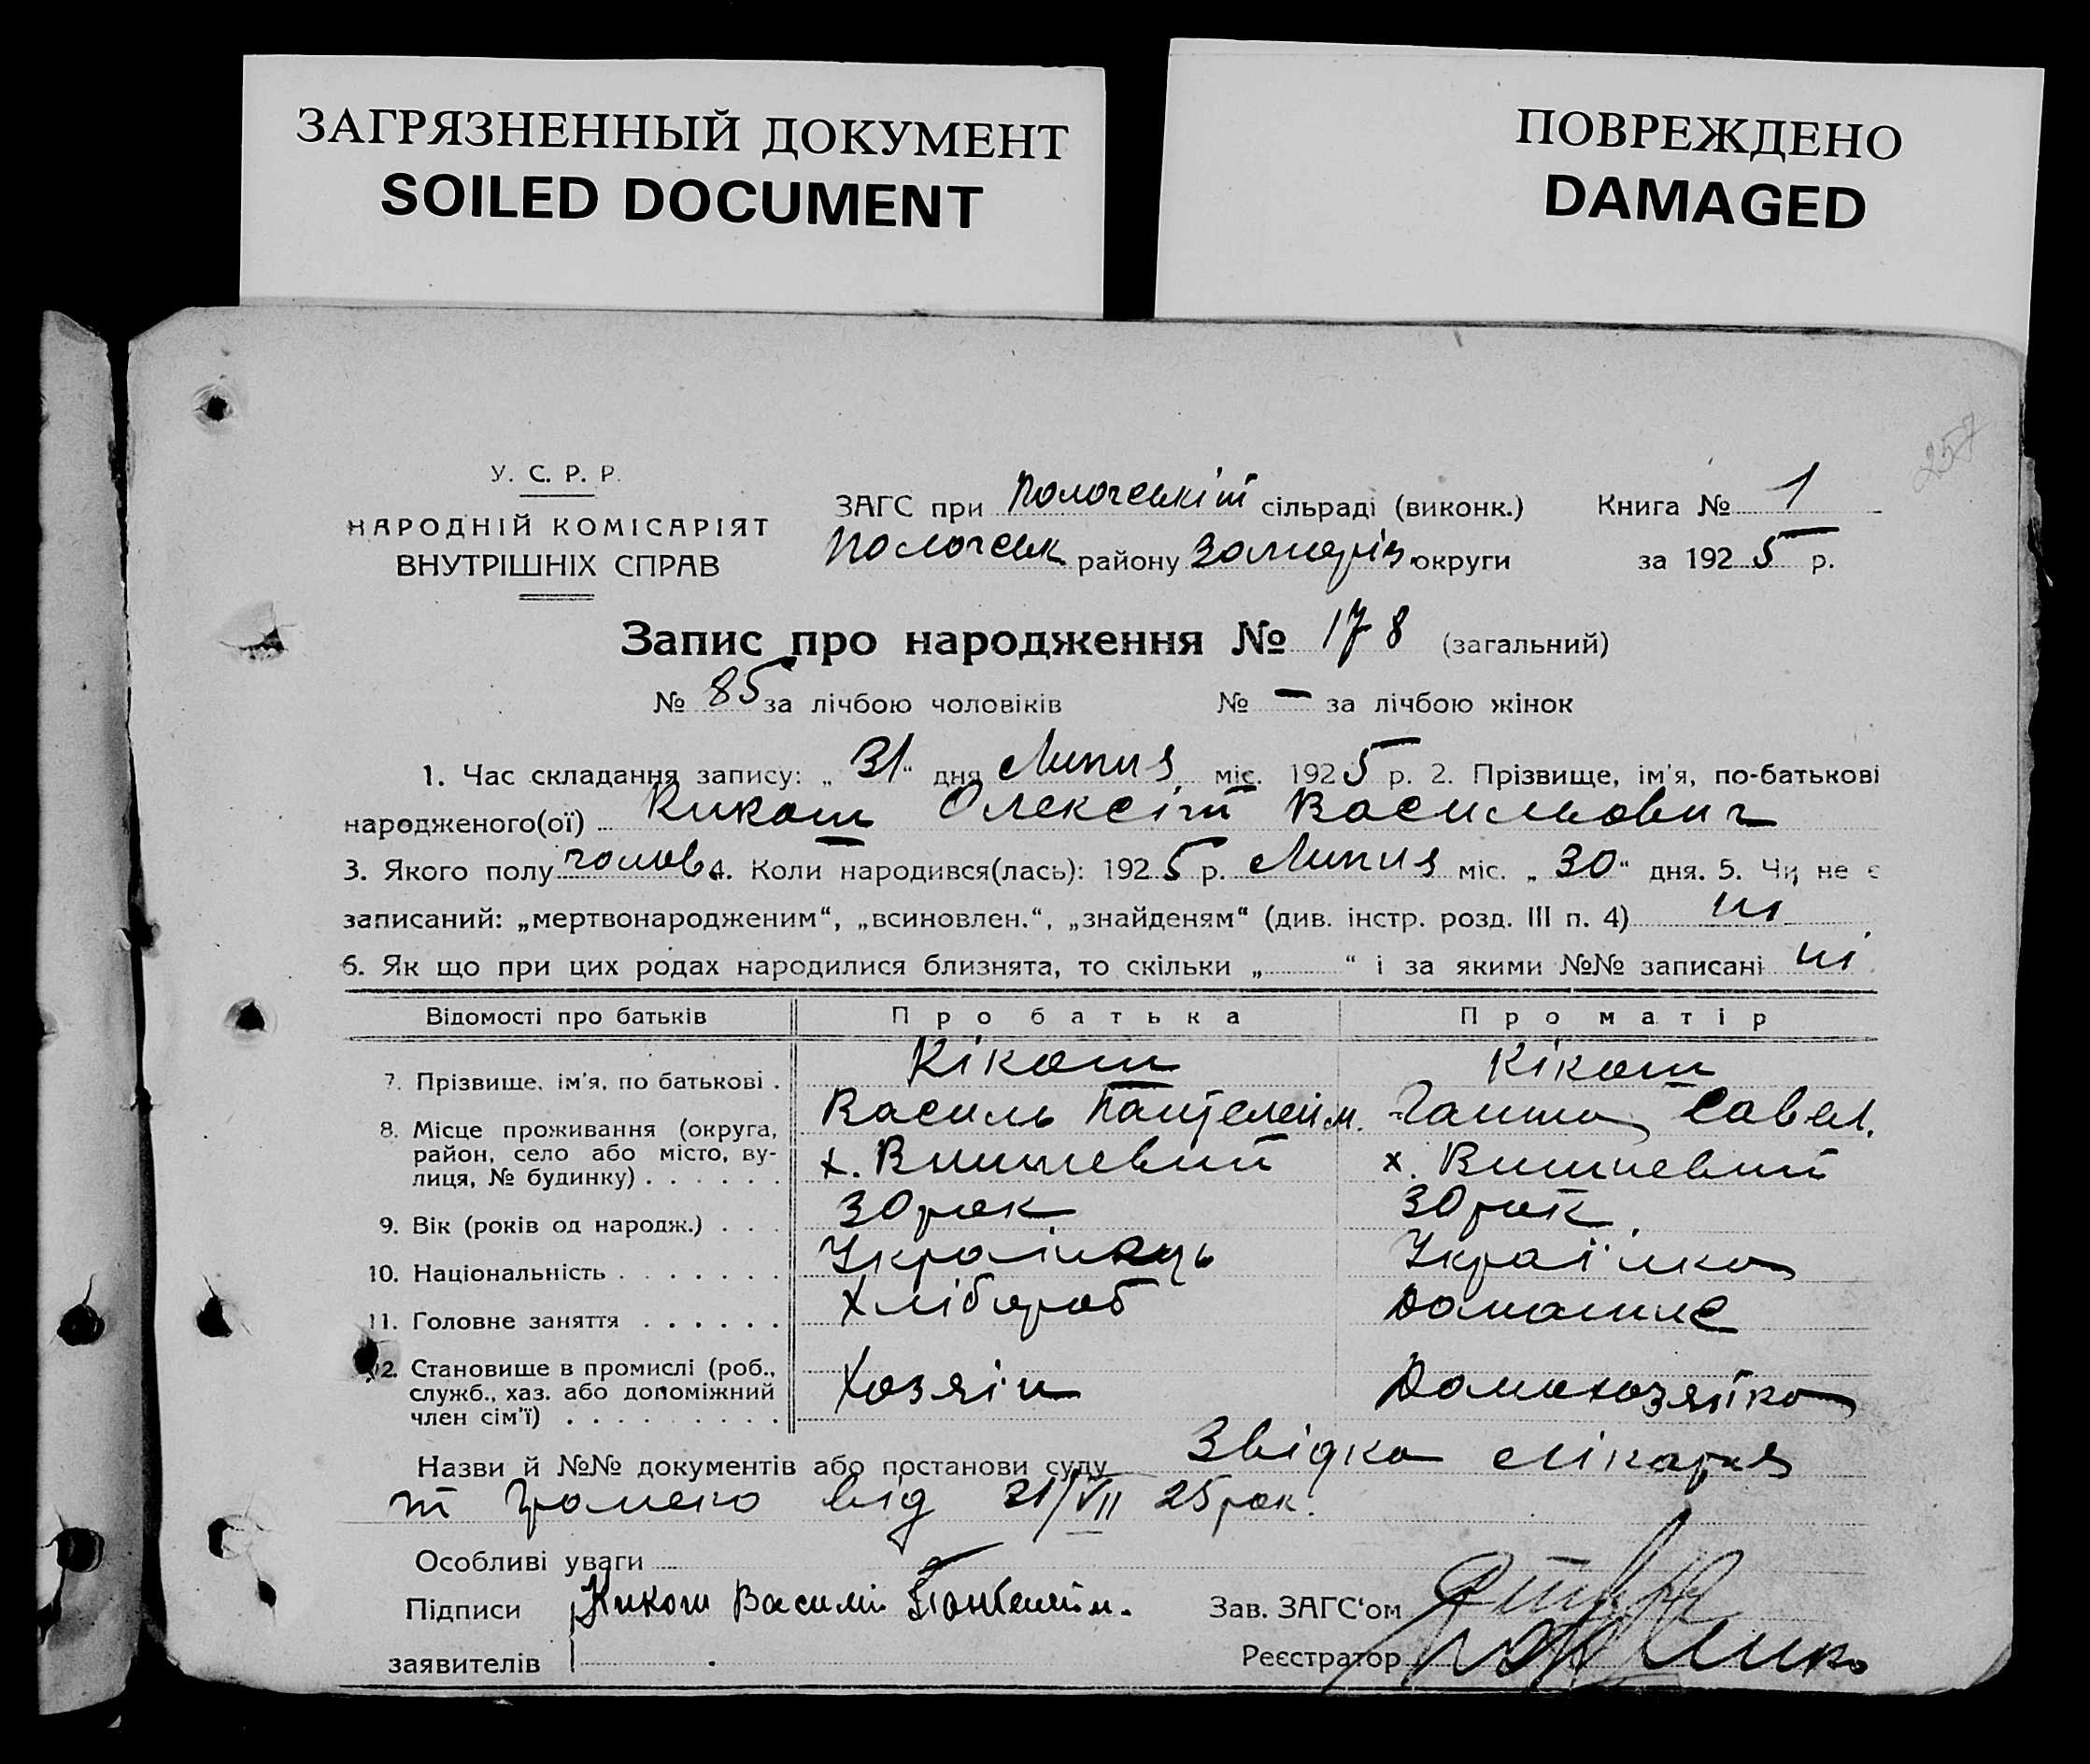 ЗАГРЯЗНЕННЫЙ ДОКУМЕНТ
SOILED DOCUMENT
ПОВРЕЖДЕНО
DAMAGED
257
У. С. Р. Р.
НАРОДНІЙ КОМІСАРІЯТ
ВНУТРІШНІХ СПРАВ
ЗАГС при Пологській сільраді (виконк.)
Пологськ району Запоріз. округи
Книга № 1
за 1925 р.
Запис про народження № 178 (загальний)
№ 85 за лічбою чоловіків № — за лічбою жінок
1. Час складання запису: „31“ дня Липня міс. 1925 р. 2. Прізвище, ім'я, по-батькові
народженого(ої) Кикот Олексій Васильович
3. Якого полу чолов 4. Коли народився(лась): 1925 р. Липня міс. „30“ дня. 5. Чи не є
записаний: „мертвонародженим“, „всиновлен.“, „знайденям“ (див. інстр. розд. III п. 4) ні
6. Як що при цих родах народилися близнята, то скільки „ “ і за якими №№ записані ні
Відомості про батьків Про батька Про матір
7. Прізвище, ім'я, по батькові . Кікот Кікот
Василь Пантелейм. Ганна Савел.
8. Місце проживання (округа, район, село або місто, вулиця, № будинку) . . . . . . х. Вишневий х. Вишневий
9. Вік (років од народж.) . . . 30 рок 30 рок.
10. Національність . . . . . . . Українець Українка
11. Головне заняття . . . . . . Хлібороб Домашнє
12. Становище в промислі (роб., служб., хаз. або допоміжний член сім'ї) . . . . . . . . . Хозяін Домохозяйка
Назви й №№ документів або постанови суду Звідка лікаря
від 31/VII 25 рок.
Особливі уваги
Підписи Кикот Василій Пантелейм. Зав. ЗАГС'ом
заявителів Реєстратор